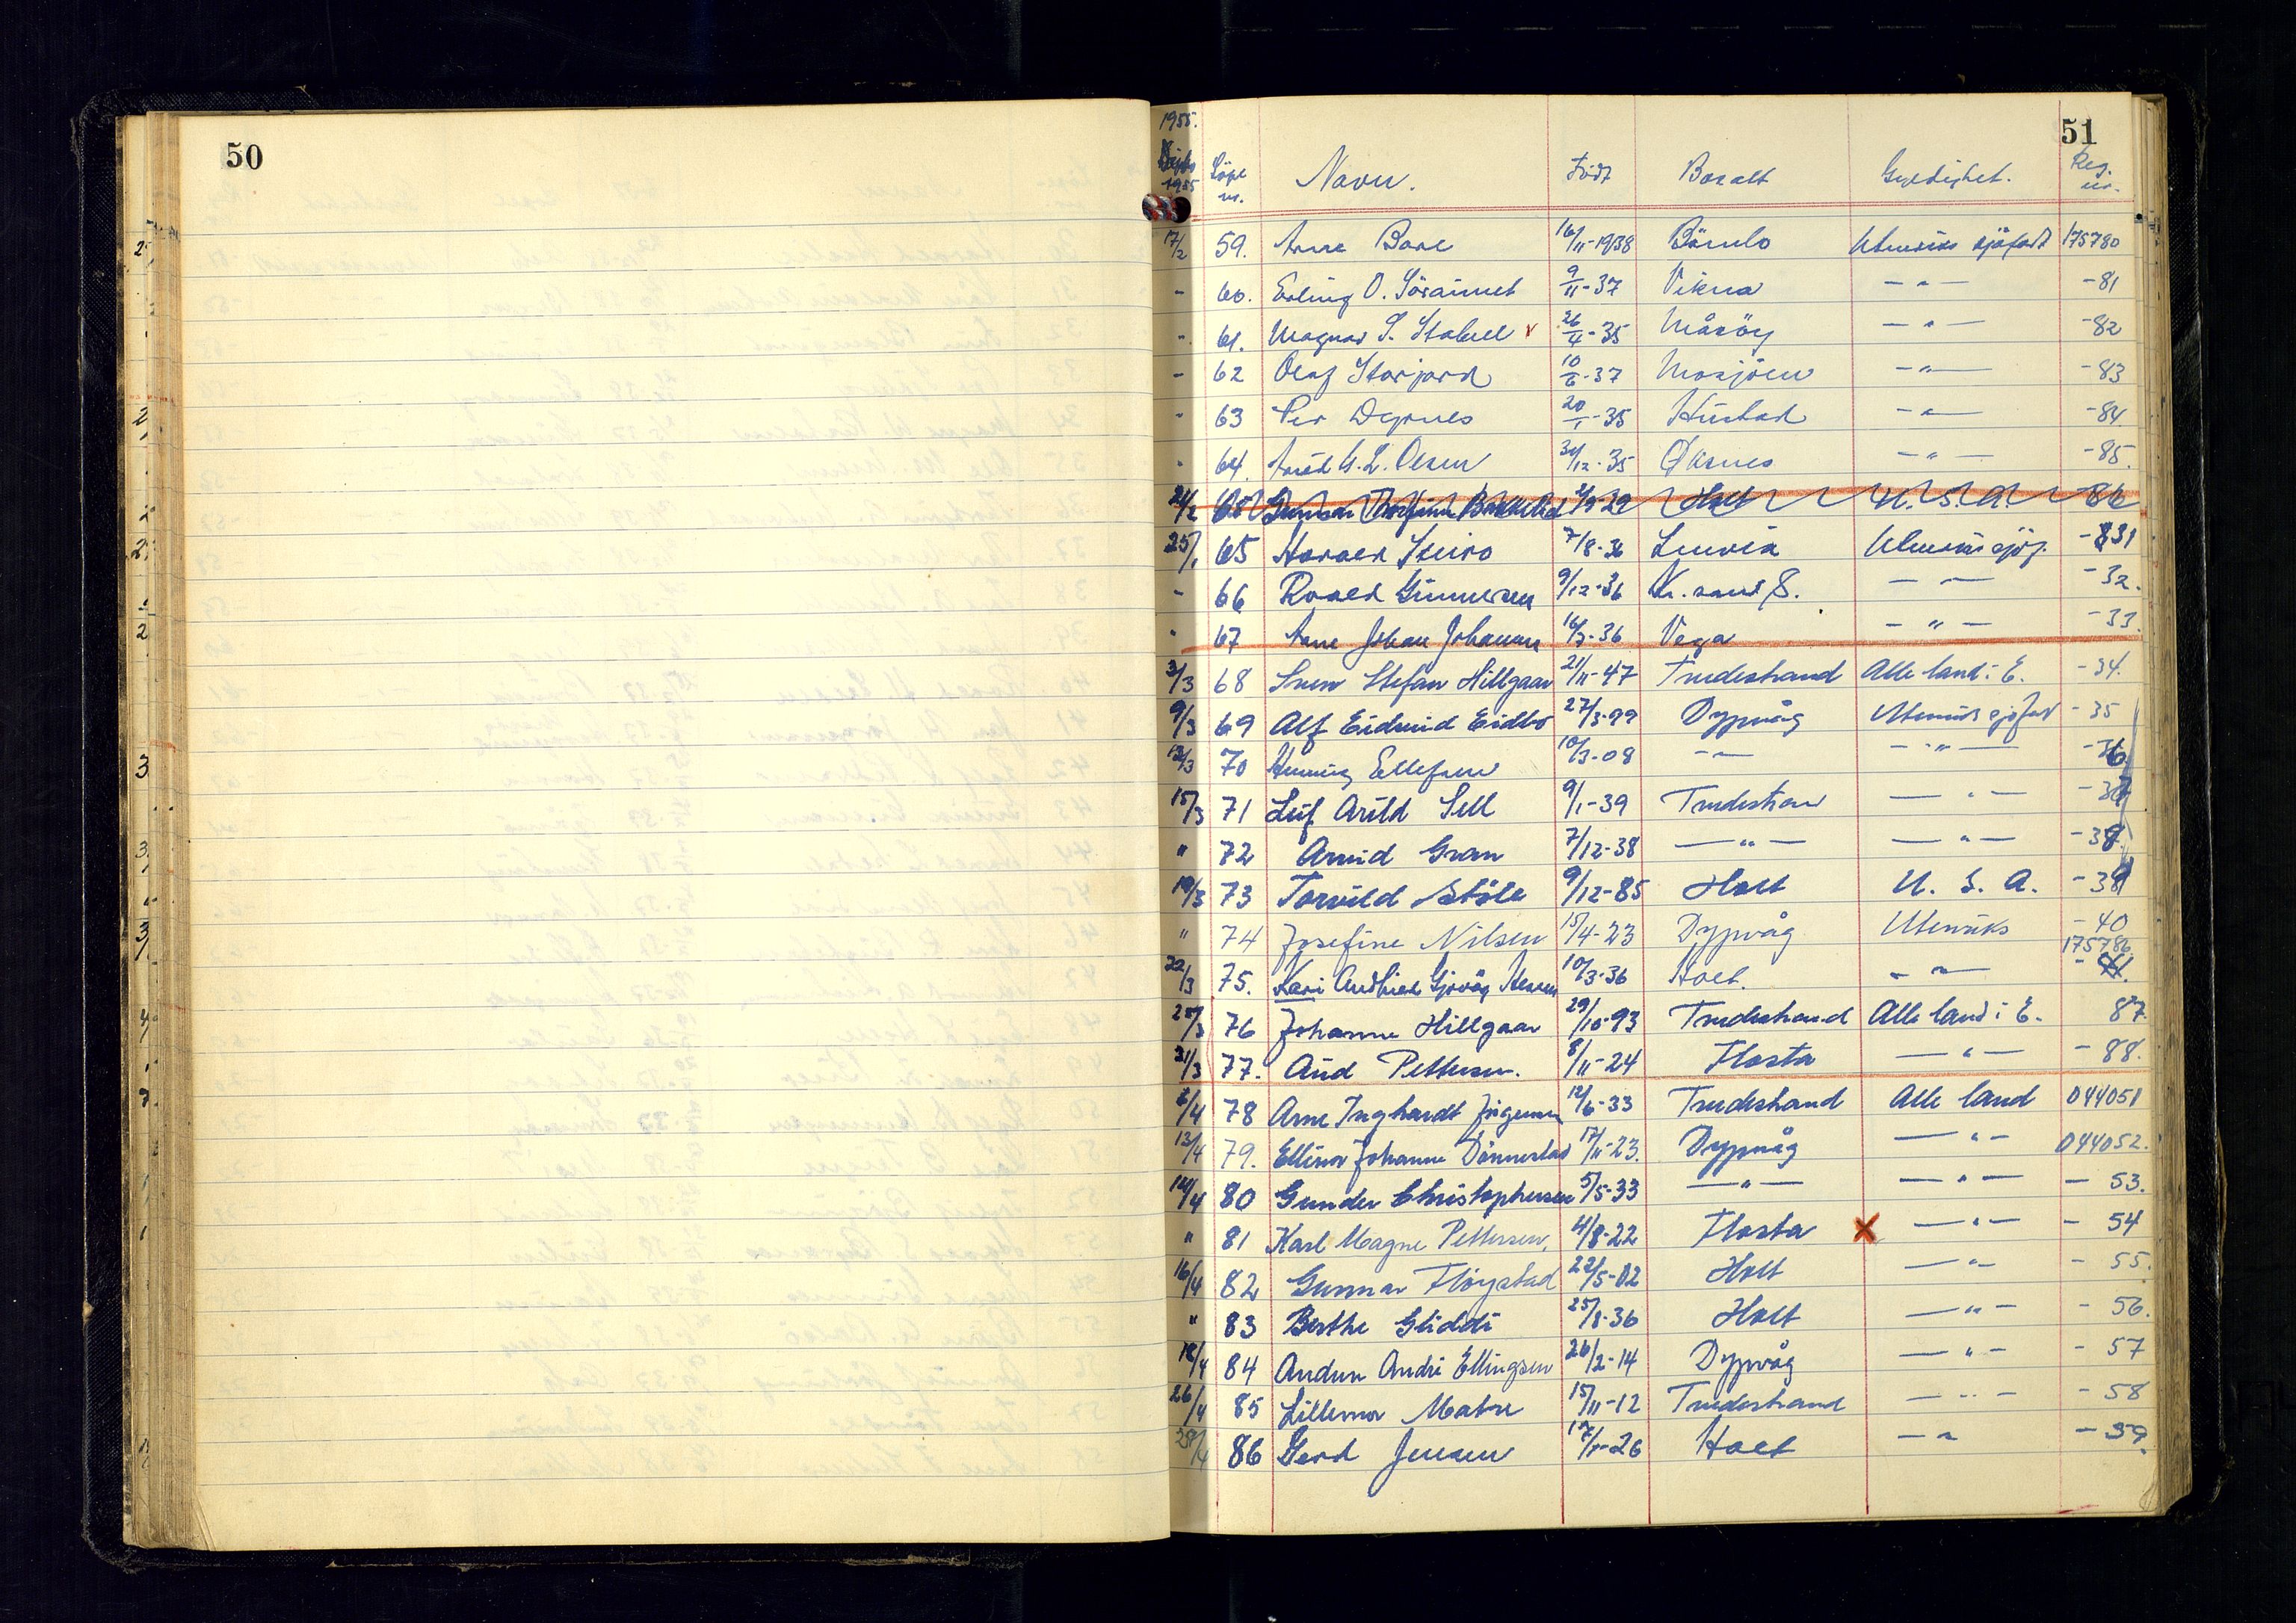 50
51
1955.
1955
Löpe nr. Navn. Født Bosatt Gyldighet. Reg. nr.
17/2 59. Arne Bore 16/11-1938 Bömlo Utenriks sjöfart 175780
- 60. Erling O. Sörainmet 9/11-37 Vikna - " - -81
" 61. Magnar S. Stabell v 26/4-35 Måsöy - " - -82
- 62 Olaf Storjord 10/6-37 Mosjöen - " - -83
" 63 Per Dyrnes 20/1-35 Hustad - " - -84
" 64. Arild A. L. Olsen 30/12-35 Øksnes - " - -85.
24/2 65 Gunnar Thorfinn Bakkelid 2/9-29 Holt U.S.A. -86
25/1 65 Harald Steiro 7/8-36 Lenvik Utenriks sjöf. -831
- 66 Roald Gunnersen 9/12-36 Kr.sand S. - - -32.
" 67 Arne Johan Johansen 16/7-36 Vega - " - -33.
3/3 68 Sven Stefan Hillgaar 21/11-47 Tvedestrand Alle land i E. -34.
9/3 69 Alf Eidvind Eidbo 27/3-99 Dypvåg Utenriks sjöfart -35
12/3 70 Henning Ellefsen 10/3-08 - - - " - -36
15/3 71 Leif Arild Sell 9/1-39 Tvedestran - " - -37
" 72 Arvid Gran 7/12-38 - " - - " - -38
19/3 73 Torvild Støle 9/12-85 Holt U. S. A. -39
" 74 Josefine Nilsen 15/4-23 Dypvåg Utenriks -40
175786
22/3 75. Kari Andhild Gjeväg Hansen 10/3-36 Holt. - " - -41.
25/3 76 Johanne Hillgaar 29/10-93 Tvedestrand Alle land i E. 87.
31/3 77. Aud Pettersen. 8/11-24 Flosta - " - -88.
2/4 78 Arne Inghardt Jörgensen 12/6-33 Tvedestrand Alle land 044051
13/4 79. Ellinor Johanne Dönnestad 17/11-23. Dypvåg - " - 044052.
14/4 80 Gunder Christophersen 5/5-33 - " - - " - - 53.
" 81 Karl Magne Pettersen, 4/8-22 Flosta X - " - - 54
16/4 82 Gunnar Fløystad 22/5-02 Holt - " - - 55.
" 83 Berthe Gliddi 25/8-36 Holt - " - - 56.
18/4 84 Audun Andre Ellingsen 26/2-14 Dypvåg - " - - 57
26/4 85 Lillemor Matre 15/11-12 Tvedestrand - " - - 58
28/4 86 Gerd Jensen 17/1-26 Holt - " - 59.